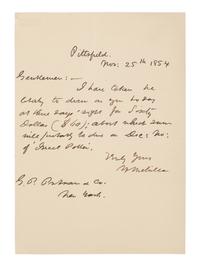 Pittsfield.
Nov: 25th 1854
Gentlemen: —
I have taken the
liberty to draw on you to-day
at three days' sight for Sixty
Dollars ($60); about which sum
will, be due on Dec: No:
of "Israel Potter".
Truly Yours
H Melville
G. P. Putnam & Co.
New York.